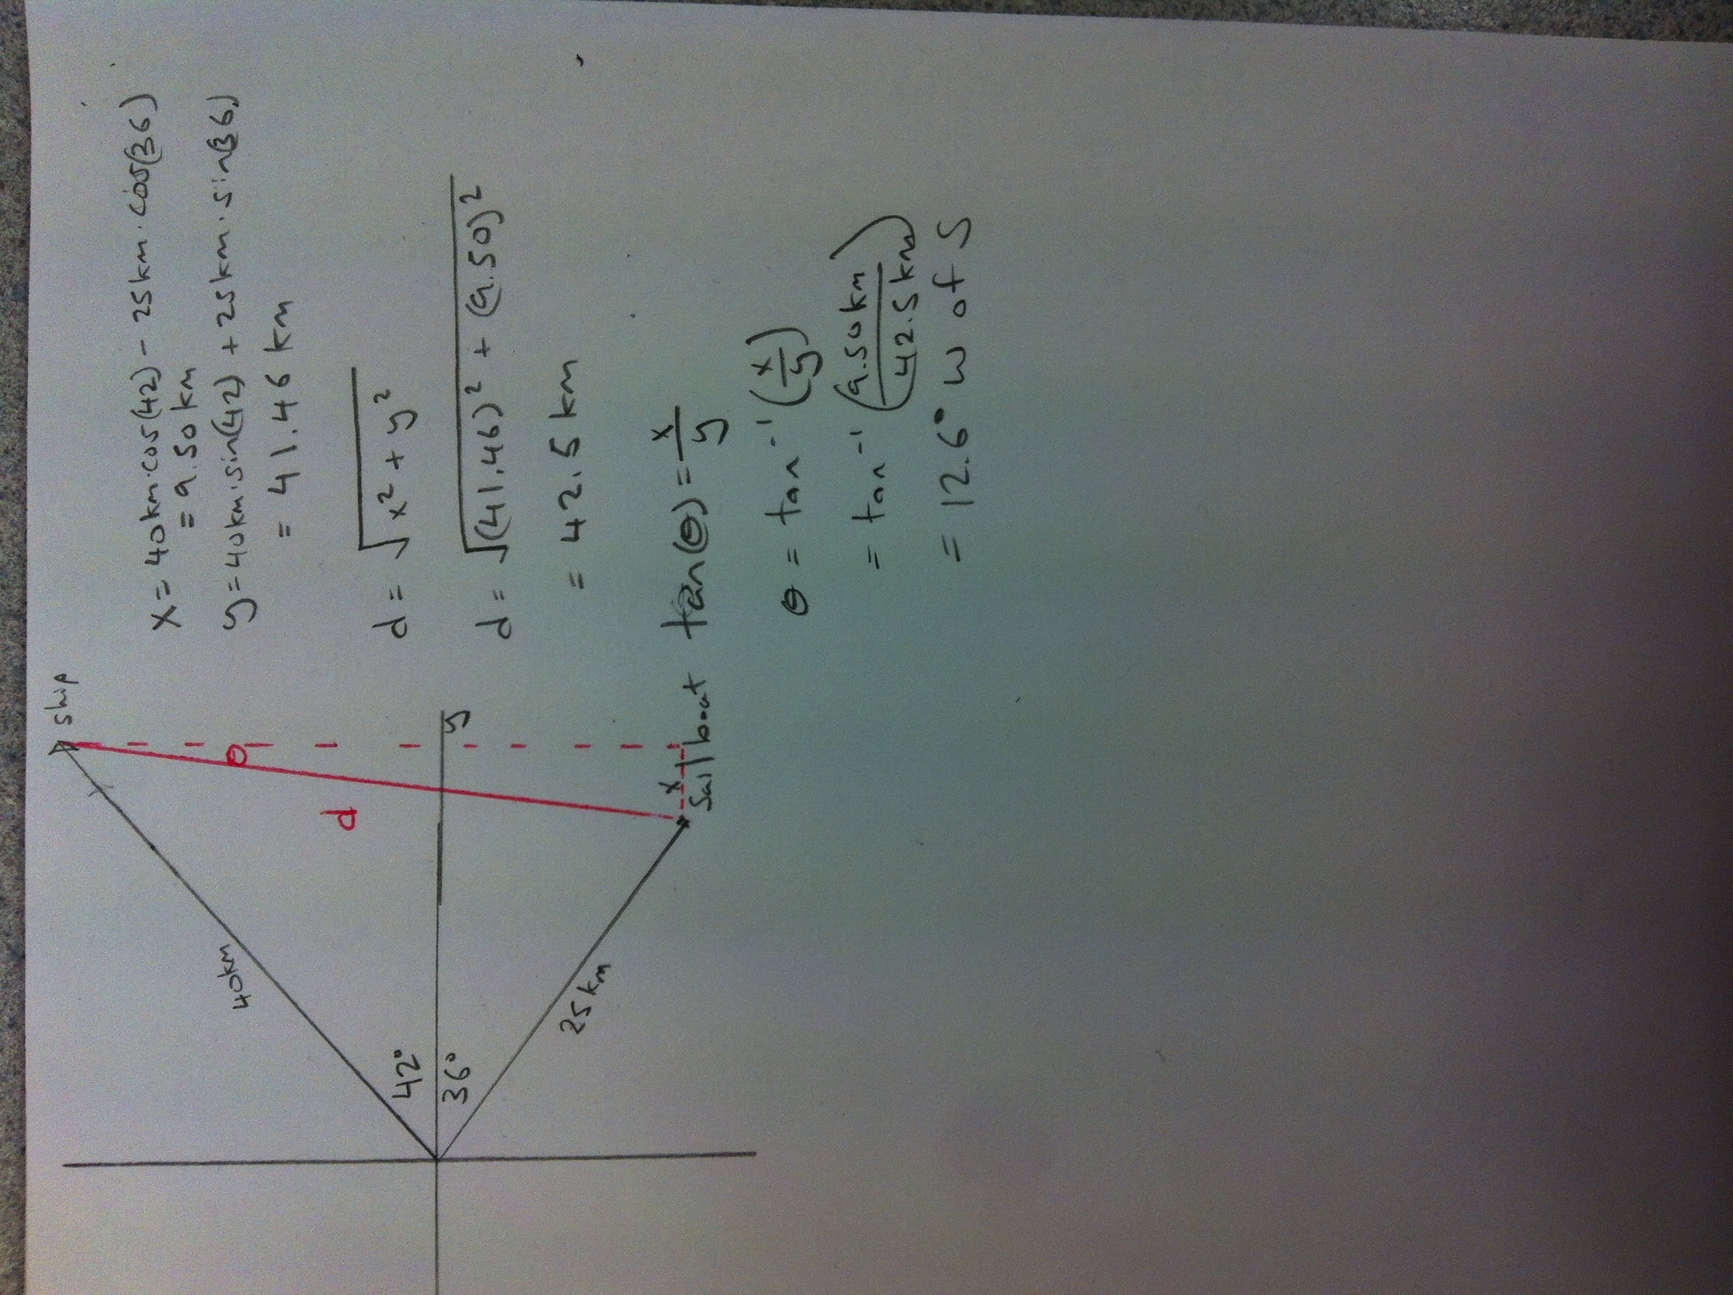 ship
40km
42°
36°
25km
y
θ
d
x
Sailboat
x = 40km·cos(42) - 25km·cos(36)
= 9.50km
y = 40km·sin(42) + 25km·sin(36)
= 41.46 km
d = √x² + y²
d = √(41.46)² + (9.50)²
= 42.5 km
tan(θ) = x/y
θ = tan⁻¹(x/y)
= tan⁻¹(9.50km/42.5km)
= 12.6° W of S